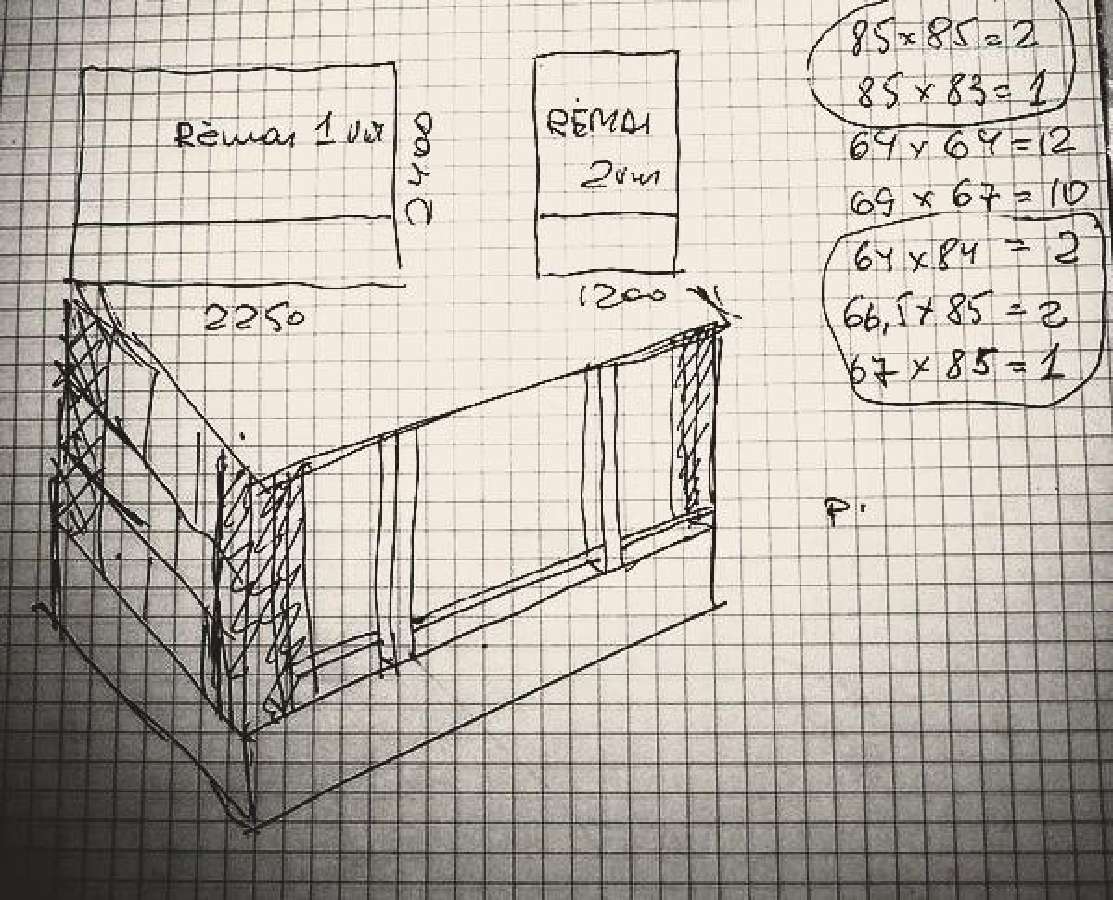 Rėmai 1 vnt
2400
2250
RĖMAI
2 vnt
1200
85 x 85 = 2
85 x 83 = 1
64 x 64 = 12
69 x 67 = 10
64 x 84 = 2
66,5 x 85 = 2
67 x 85 = 1
P.